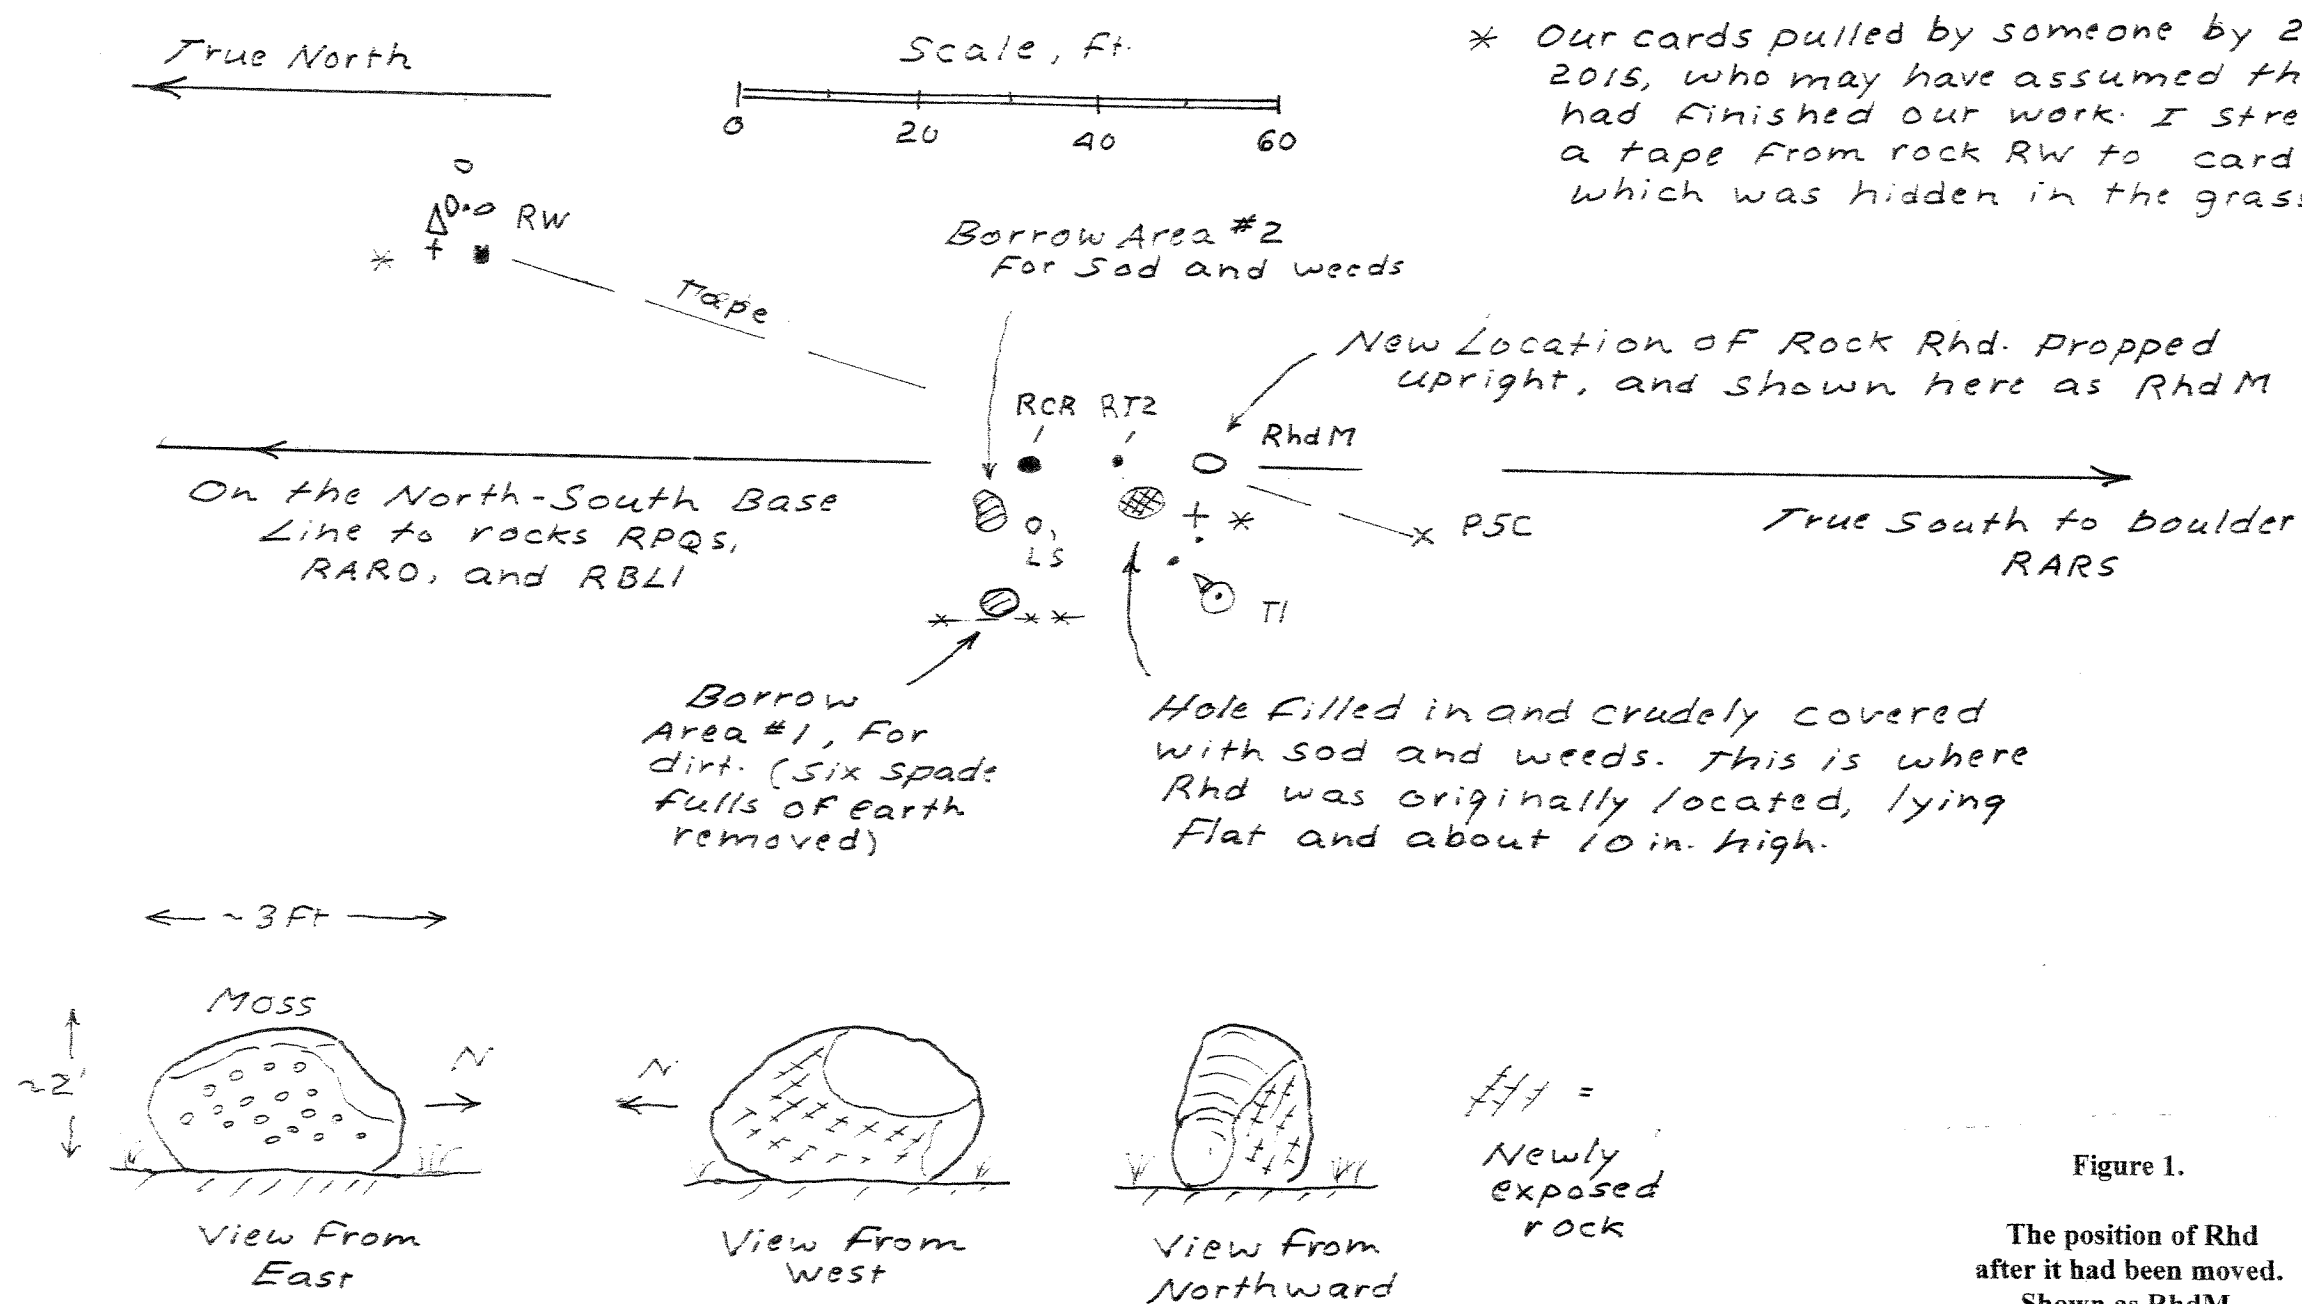 True North
Scale, ft.
0 20 40 60
* Our cards pulled by someone by 2
2015, who may have assumed th
had finished our work. I stre
a tape from rock RW to card
which was hidden in the grass
RW
Tape
Borrow Area #2
For sod and weeds
New Location of Rock Rhd. Propped
upright, and shown here as RhdM
RCR RT2
RhdM
On the North-South Base
Line to rocks RPQS,
RARO, and RBL1
LS
P5C
True South to boulder
RARS
T1
Borrow
Area #1, for
dirt. (six spade
fulls of earth
removed)
Hole filled in and crudely covered
with sod and weeds. This is where
Rhd was originally located, lying
flat and about 10 in. high.
~3 Ft
Moss
~2'
N
N
= Newly
exposed
rock
View from
East
View from
West
View from
Northward
Figure 1.
The position of Rhd
after it had been moved.
Shown as RhdM